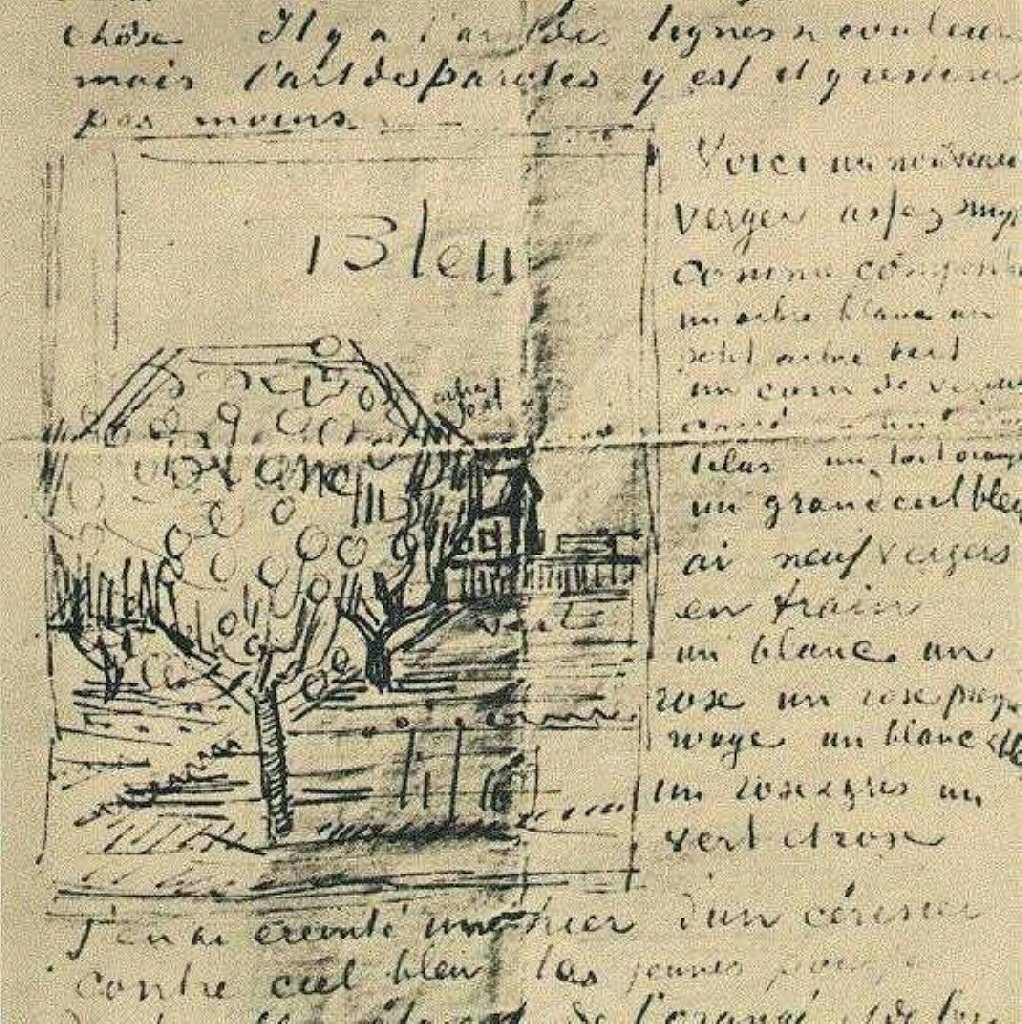 chose Il y a l'art des lignes & couleurs
mais l'art des paroles y est et y restera
pas moins.
Bleu
blanc
verte
Voici un nouveau
verger assez simple
comme composition
un arbre blanc un
petit arbre vert
un carré de verdure
lilas un toit orangé
un grand ciel bleu
ai neuf vergers
en train
un blanc un
rose un rose presque
rouge un blanc et bleu
un rose & gris un
vert et rose
J'en ai éreinté un hier d'un cérisier
contre ciel bleu les jeunes
de l'orangé